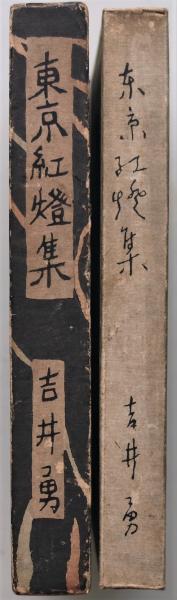 東京紅燈集
吉井勇
东京红灯集
吉井勇